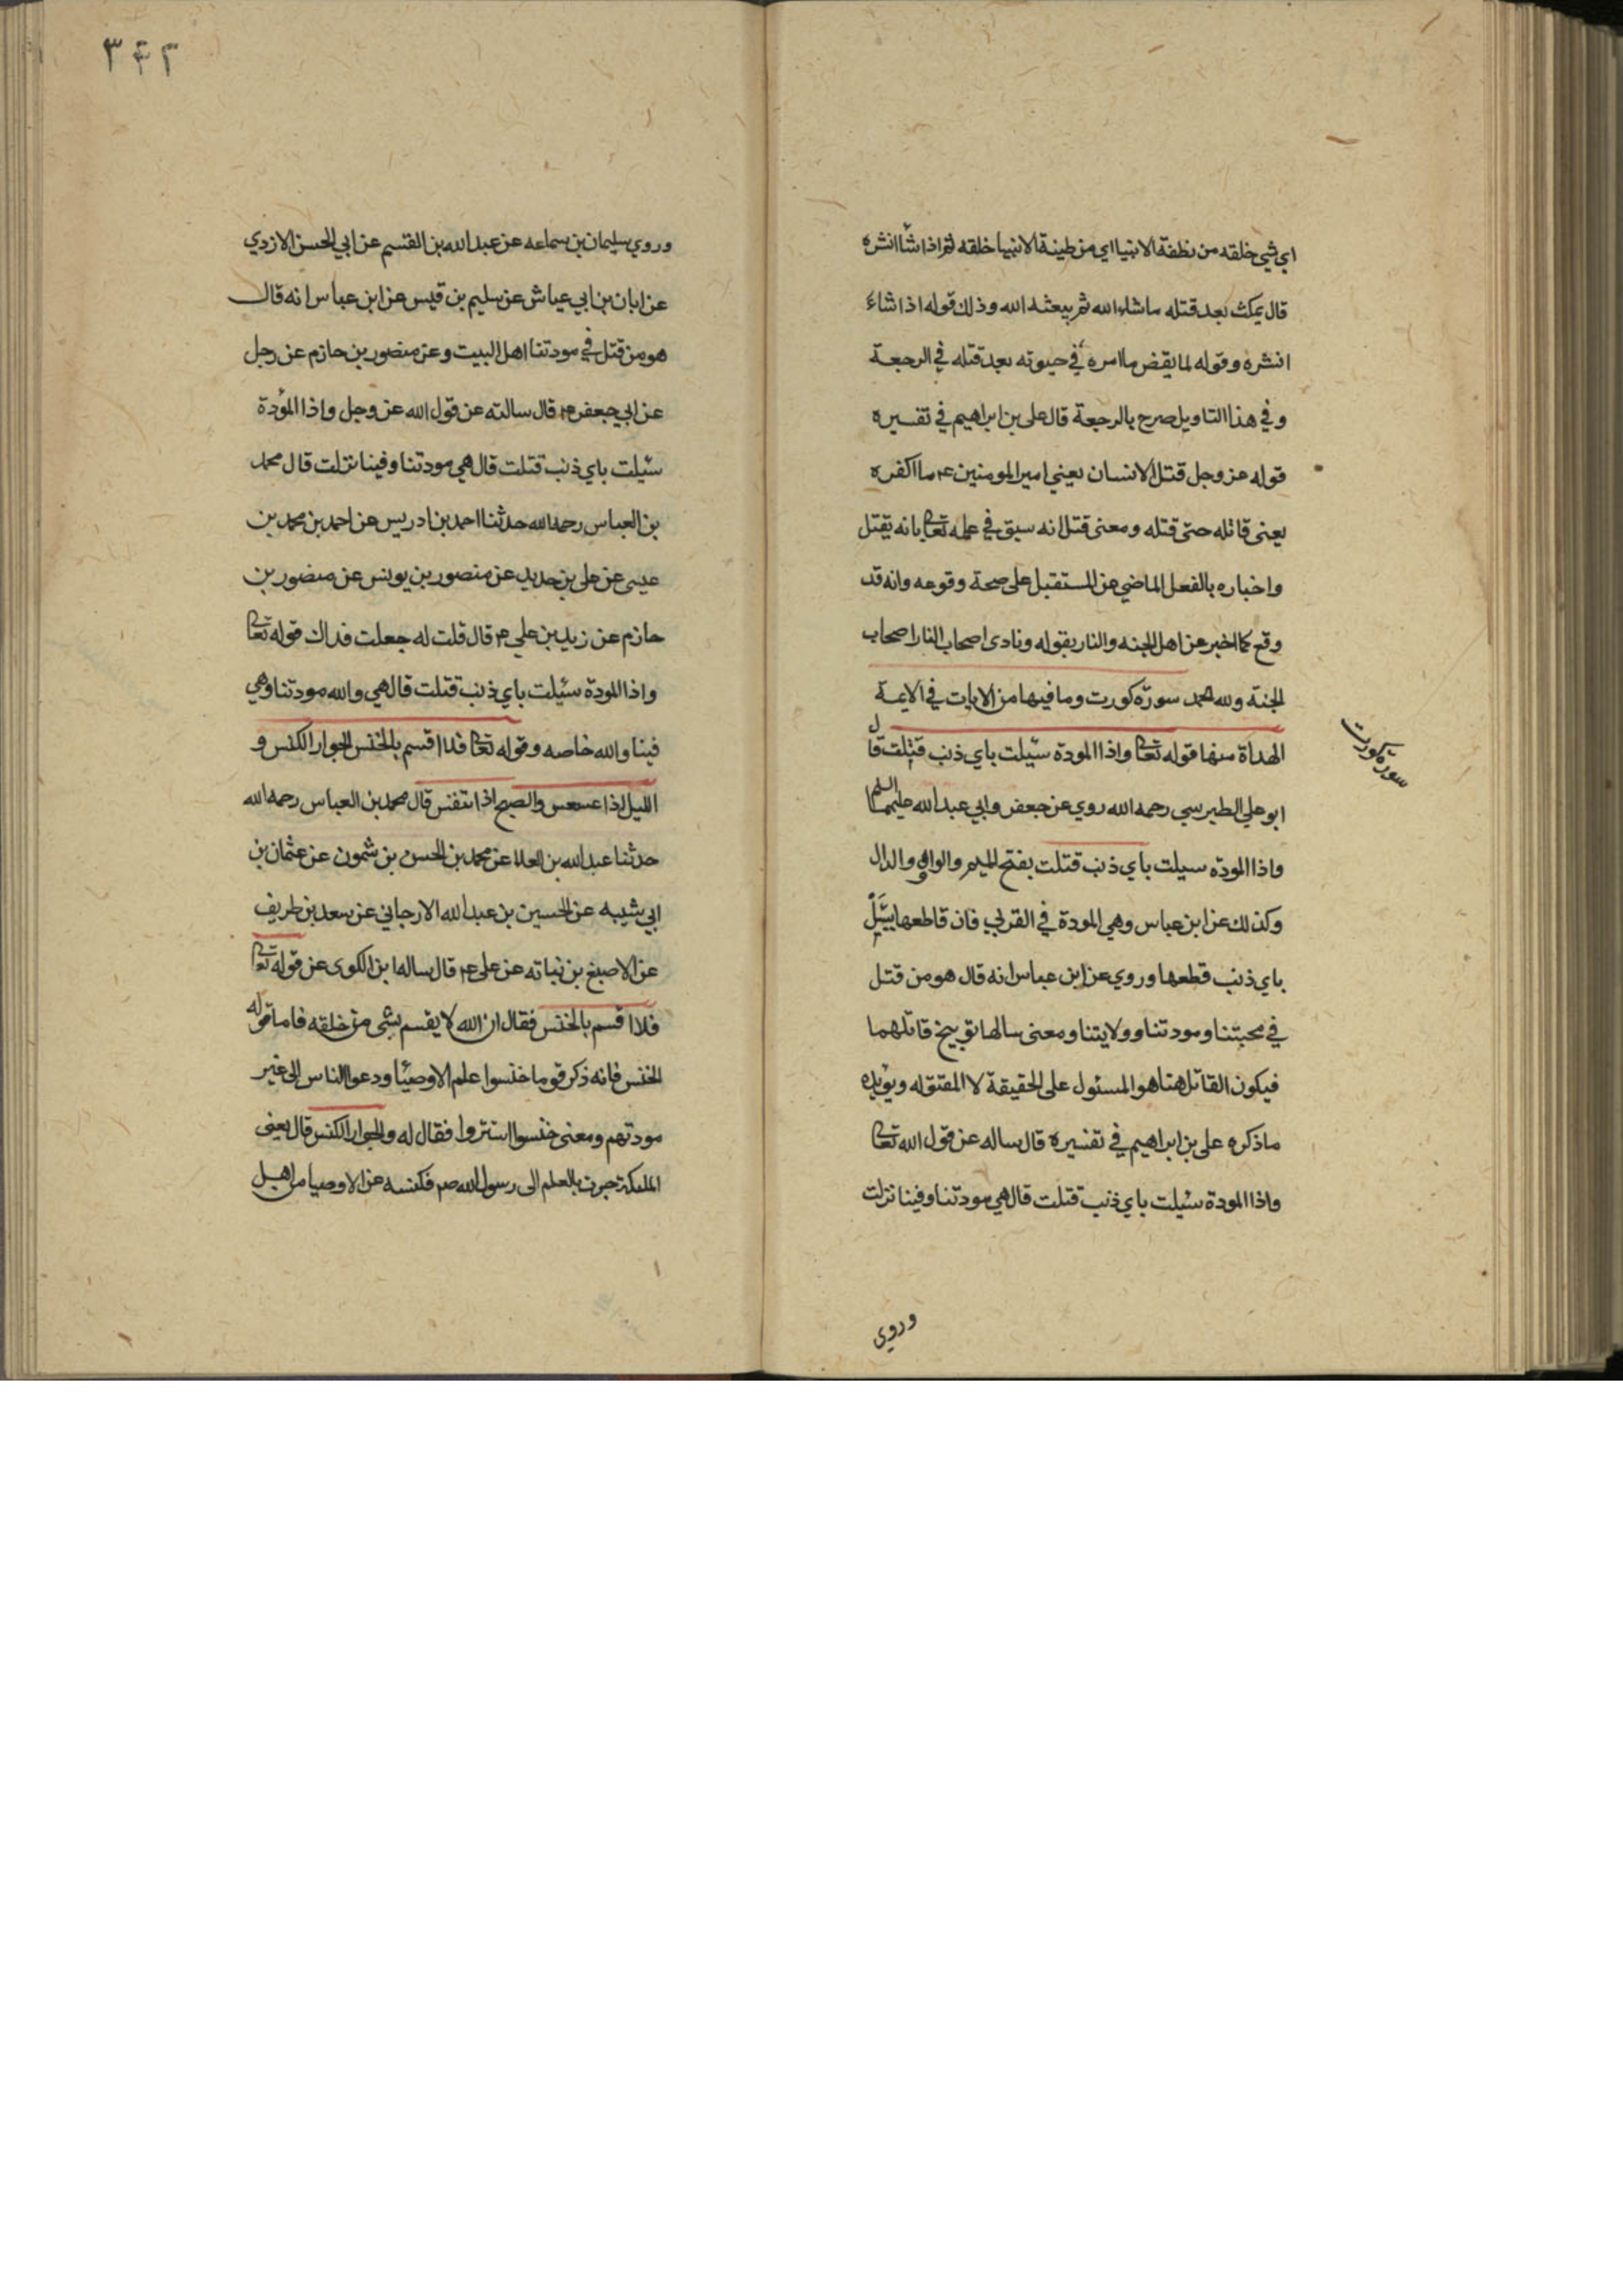 اي شي خلقه من نطفة الانبيا اي من طينة الانبيا خلقه ثم اذا شأ انشره
قال يمكث بعد قتله ماشاء الله ثم يبعثه الله وذلك قوله اذا شاء
انشره وقوله لما يقض ما امره في حيوته بعد قتله في الرجعة
وفي هذا التاويل صرح بالرجعة قال على بن ابراهيم في تفسيره
قوله عز وجل قتل الانسان يعني امير المومنين ع ما اكفره
يعنى قاتله حتى قتله ومعنى قتل انه سبق في علمه تعالى بانه يقتل
واخباره بالفعل الماضي عن المستقبل على صحة وقوعه وانه قد
وقع كما اخبر عن اهل الجنه والنار بقوله ونادى اصحاب النار اصحاب
الجنة ولله الحمد سورة كورت وما فيها من الايات في الايمة
الهداة منها قوله تعالى واذا المودة سئيلت باي ذنب قتلت قال
ابو علي الطبرسي رحمه الله روي عن جعفر وابي عبد الله عليهما السلم
واذا المودة سيلت بأي ذنب قتلت بفتح الميم والواو والدال
وكذلك عن ابن عباس وهي المودة في القربي فان قاطعها يسئل
باي ذنب قطعها وروي عن ابن عباس انه قال هو من قتل
في محبتنا ومودتنا وولايتنا ومعنى سالها توبيخ قاتلهما
فيكون القاتل هنا هو المسئول على الحقيقة لا المقتوله ويؤيده
ماذكره على بن ابراهيم في تفسيره قال ساله عن قول الله تعالى
واذا المودة سئيلت باي ذنب قتلت قال هي مودتنا وفينا نزلت
سورة كورت
وروي
٣٤٢
وروي سليمان بن سماعه عن عبد الله بن القسم عن ابي الحسن الازدي
عن ابان بن ابي عياش عن سليم بن قيس عن ابن عباس انه قال
هو من قتل في مودتنا اهل البيت وعن منصور بن حازم عن رجل
عن ابي جعفر ع قال سالته عن قول الله عز وجل واذا المؤدة
سئيلت باي ذنب قتلت قال هي مودتنا وفينا نزلت قال محمد
بن العباس رحمه الله حدثنا احمد بن ادريس عن احمد بن محمد بن
عيسى عن على بن حديد عن منصور بن يونس عن منصور بن
حازم عن زيد بن علي ع قال قلت له جعلت فداك قوله تعالى
واذا المودة سئيلت باي ذنب قتلت قال هي والله مودتنا وهي
فينا والله خاصه وقوله تعالى فلا اقسم بالخنس الجوار الكنس و
الليل اذا عسعس والصبح اذا تنفس قال محمد بن العباس رحمه الله
حدثنا عبد الله بن العلا عن محمد بن الحسن بن شمون عن عثمان بن
ابي شيبه عن الحسين بن عبد الله الارجاني عن سعد بن طريف
عن الاصبغ بن نباته عن على ع قال ساله ابن الكوى عن قوله تعالى
فلا اقسم بالخنس فقال ان الله لا يقسم بشى من خلقه فاما قوله
الخنس فانه ذكر قوما خنسوا علم الاوصيا ودعوا الناس الى غير
مودتهم ومعنى خنسوا استتروا فقال له والجوار الكنس قال يعنى
الملئكة جرت بالعلم الى رسول الله ص فكنسه عن الاوصيا من اهل